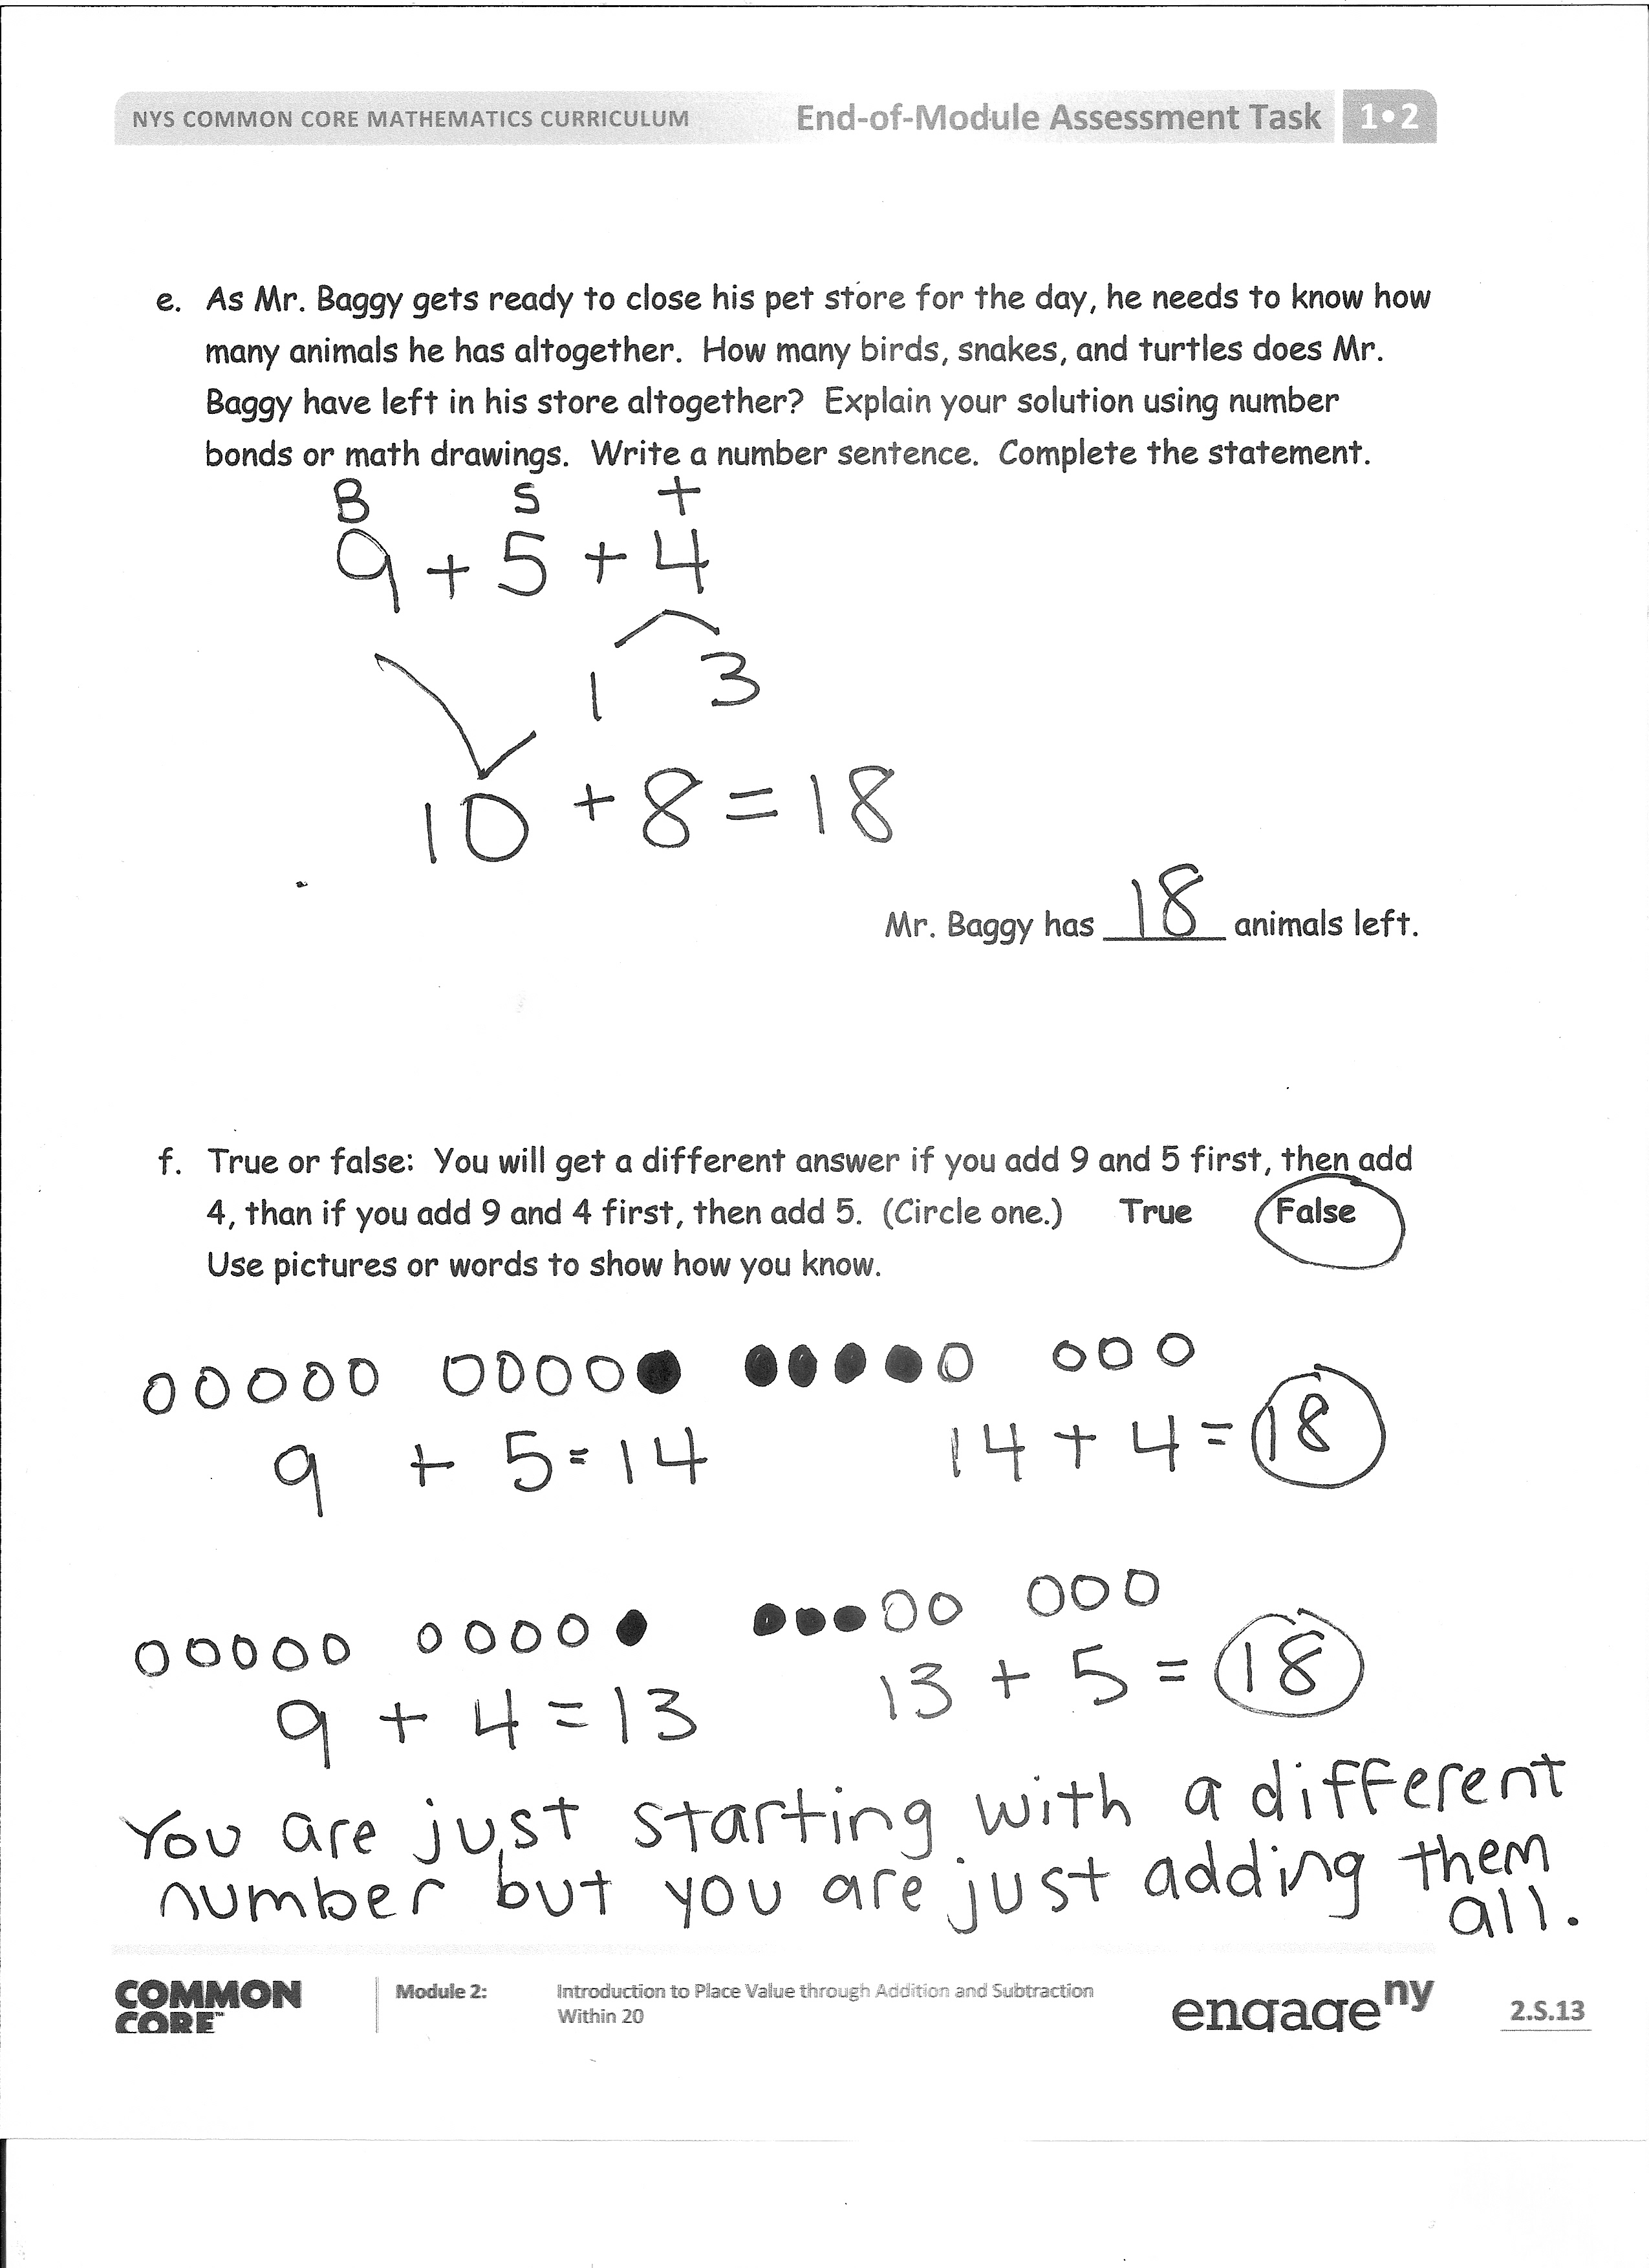 NYS COMMON CORE MATHEMATICS CURRICULUM End-of-Module Assessment Task 1•2
e. As Mr. Baggy gets ready to close his pet store for the day, he needs to know how
many animals he has altogether. How many birds, snakes, and turtles does Mr.
Baggy have left in his store altogether? Explain your solution using number
bonds or math drawings. Write a number sentence. Complete the statement.
B S t
9 + 5 + 4
1 3
10 + 8 = 18
Mr. Baggy has 18 animals left.
f. True or false: You will get a different answer if you add 9 and 5 first, then add
4, than if you add 9 and 4 first, then add 5. (Circle one.) True False
Use pictures or words to show how you know.
9 + 5 = 14 14 + 4 = 18
9 + 4 = 13 13 + 5 = 18
You are just starting with a different
number but you are just adding them
all.
COMMON CORE™ Module 2: Introduction to Place Value through Addition and Subtraction
Within 20
engage ny 2.S.13